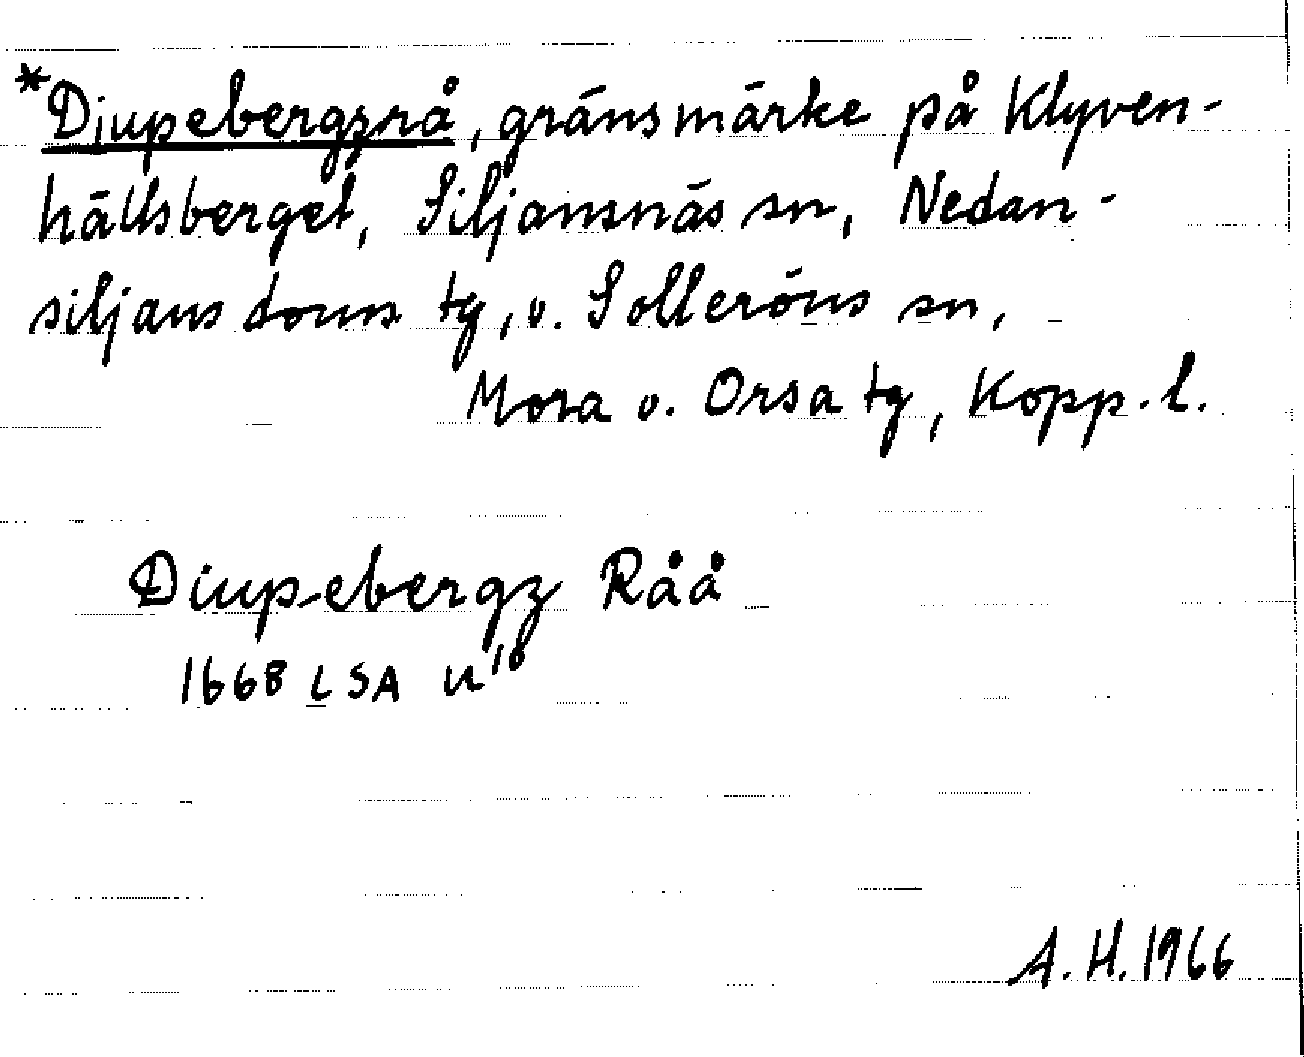 *Djupebergzrå, gränsmärke på Klyven-
hällsberget, Siljansnäs sn, Nedan-
siljans doms tg, o. Solleröns sn,
Mora o. Orsa tg, Kopp. l.
Diupebergz Råå
1668 LSA U¹⁰
A. H. 1966